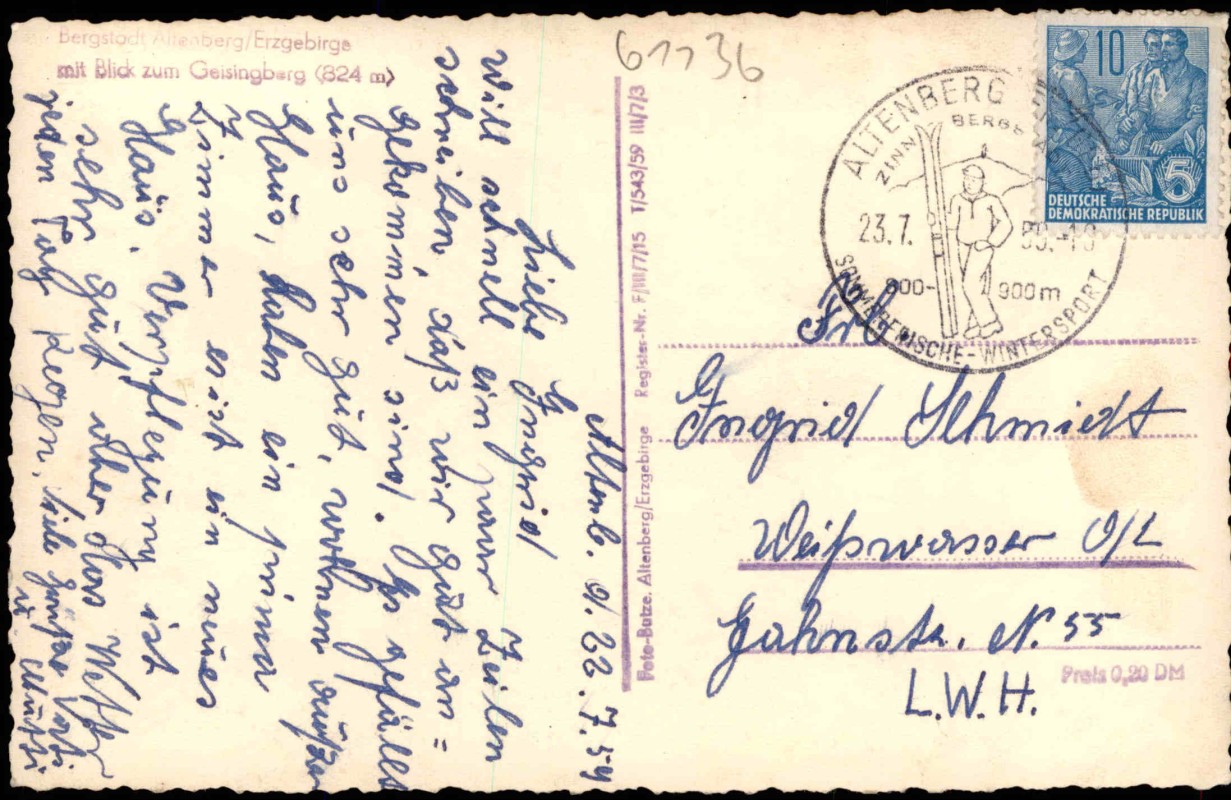 Bergstadt Altenberg/Erzgebirge
mit Blick zum Geisingberg (824 m)
61136
Altenb. d. 22.7.59
Liebe Ingrid
will schnell ein paar Zeilen
schreiben, daß wir gut an=
gekommen sind. Es gefällt
uns sehr gut, wohnen außer
Haus, haben ein prima
Zimmer erst ein neues
Haus. Verpflegung ist
sehr gut aber das Wetter
jeden Tag Regen. Viele Grüße Vati
u. Mutti
Foto-Butze, Altenberg/Erzgebirge Register-Nr. F/III/7/15 T/543/59 III/7/3
10
5
DEUTSCHE
DEMOKRATISCHE REPUBLIK
ALTENBERG
ZINN
BERGB
23.7.
800-
900m
SOMMERFRISCHE-WINTERSPORT
Frl.
Ingrid Schmidt
Weißwasser O/L
Jahnstr. N. 55
L.W.H.
Preis 0,20 DM